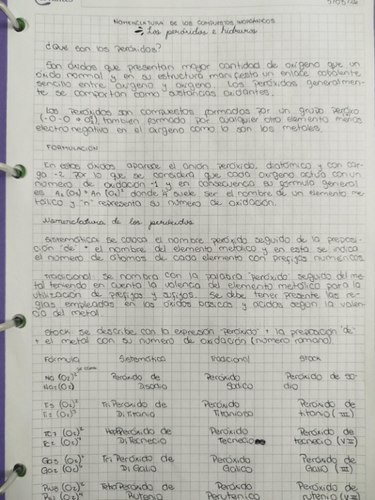 NOMENCLATURA DE LOS COMPUESTOS INORGÁNICOS
Los peróxidos e hidruros
¿QUE SON LOS PERÓXIDOS?
Son óxidos que presentan mayor cantidad de oxígeno que un
óxido normal y en su estructura manifiesta un enlace covalente
sencillo entre oxígeno y oxígeno. Los peróxidos generalmen-
te se comportan como sustancias oxidantes.
Los Peróxidos son compuestos formados por un grupo peroxo
también formada por cualquier otro elemento menos
electronegativo en el oxígeno como lo son los metales.
FORMULACIÓN
En estos óxidos aparece el anión peróxido, diatómico y con car-
ga -2 por lo que se considera que cada oxígeno actúa con un
número de oxidación -1 y en consecuencia su fórmula general
es donde "A" suele ser el nombre de un elemento me-
tálico y "n" representa su número de oxidación.
Nomenclatura de los peróxidos
Sistemática: se coloca el nombre peróxido seguido de la preposi-
ción "de" + el nombre del elemento metálico y en esta se indica
el número de átomos de cada elemento con prefijos numéricos
Tradicional: se nombra con la palabra "peróxido" seguido del me-
tal teniendo en cuenta la valencia del elemento metálico para la
utilización de prefijos y sufijos. Se debe tener presente las re-
glas empleadas en los óxidos básicos y ácidos según la valen-
cia del metal.
Stock: se describe con la expresión peróxido + la preposición "de"
+ el metal con su número de oxidación (número romano).
Fórmula Sistemática Tradicional Stock
Peróxido de Peróxido Peróxido de so-
Disodio Sódico dio
Tri Peróxido de Peróxido Peróxido de
Di Titanio Titanioso titanio (III)
Peróxido de Peróxido Peróxido de
Di Tecnecio Tecnecio (VII)
Tri Peróxido de Peróxido Peróxido de
Di Galio Galico Galio (III)
Peróxido de Peróxido Peróxido de
Rutenio Perutenico